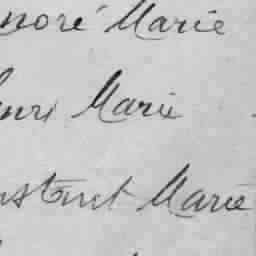 noré Marie
enri Marie
nstant Marie